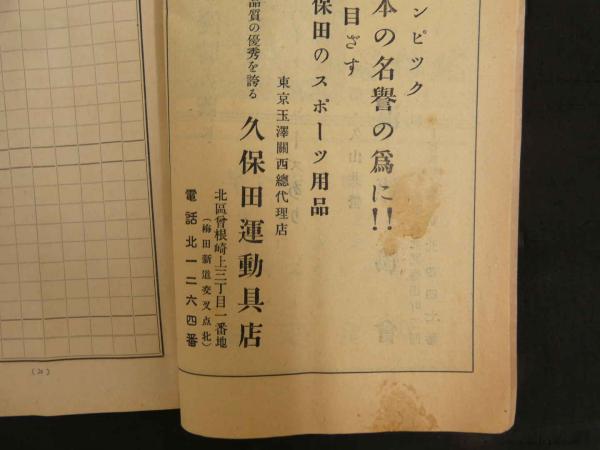 ンピツク
本の名譽の爲に!!
目ざす
保田のスポーツ用品
東京玉澤關西總代理店
品質の優秀を誇る
久保田運動具店
北區曾根崎上三丁目一番地
(梅田新道交叉点北)
電話北一二六四番
(20)